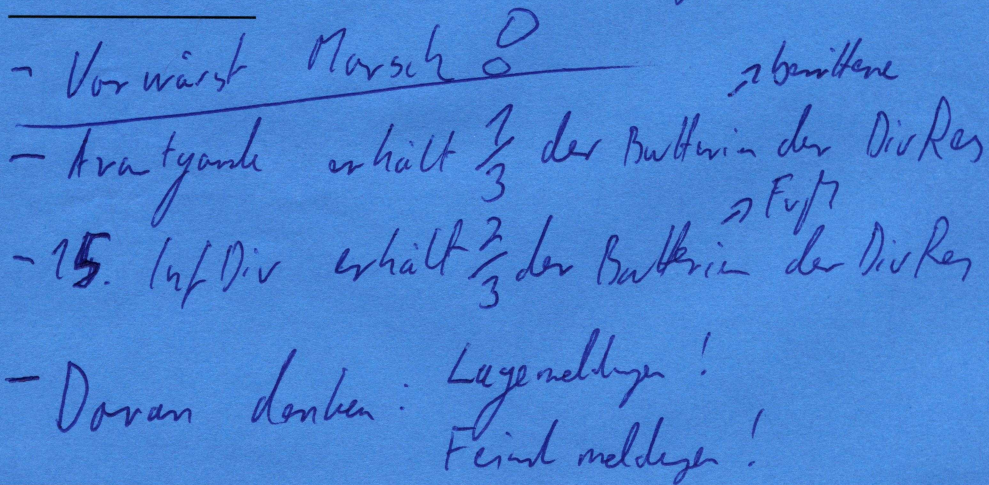 - Vorwärst Marsch!
→ berittene
- Avantgarde erhält 1/3 der Batterien der DivRes
→ Fuß
- 15. InfDiv erhält 2/3 der Batterien der DivRes
- Daran denken: Lagemeldungen!
Feindmeldungen!